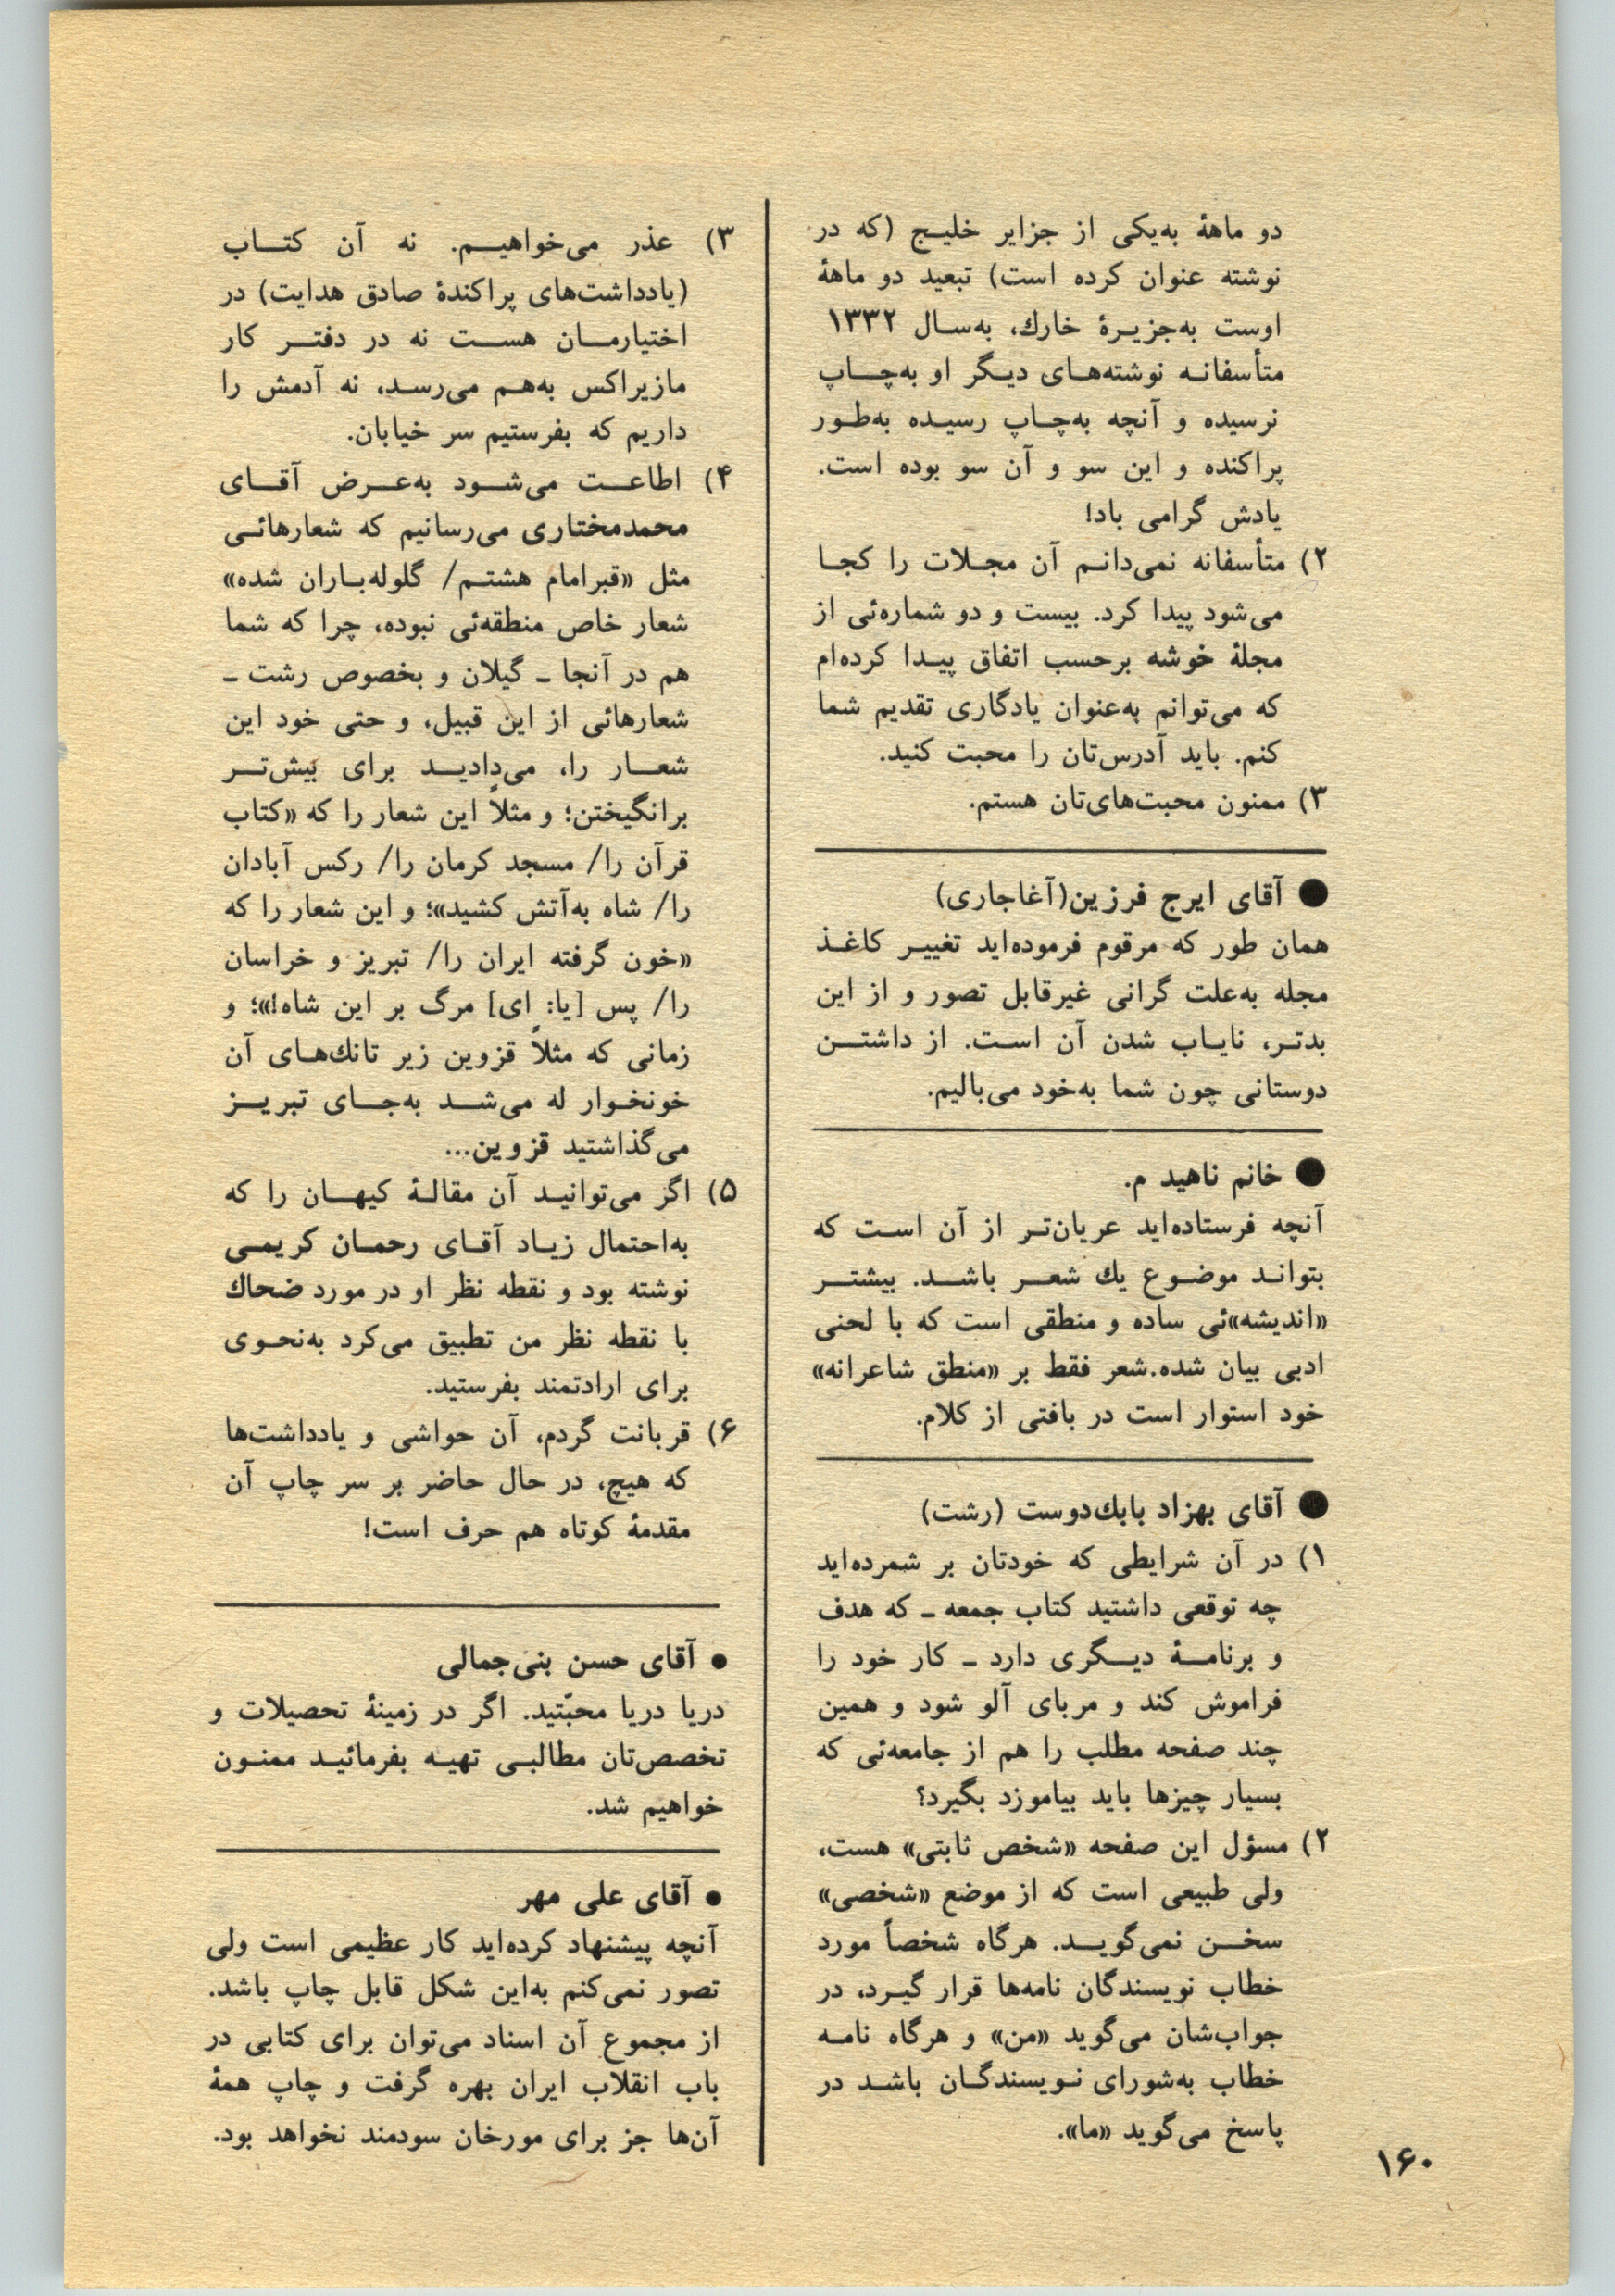 دو ماههٔ به‌یکی از جزایر خلیج (که در
نوشته عنوان کرده است) تبعید دو ماههٔ
اوست به‌جزیرهٔ خارك، به‌سال ۱۳۳۲
متأسفانه نوشته‌های دیگر او به‌چاپ
نرسیده و آنچه به‌چاپ رسیده به‌طور
پراکنده و این سو و آن سو بوده است.
یادش گرامی باد!
۲) متأسفانه نمی‌دانم آن مجلات را کجا
می‌شود پیدا کرد. بیست و دو شماره‌ئی از
مجلهٔ خوشه برحسب اتفاق پیدا کرده‌ام
که می‌توانم به‌عنوان یادگاری تقدیم شما
کنم. باید آدرس‌تان را محبت کنید.
۳) ممنون محبت‌های‌تان هستم.
● آقای ایرج فرزین(آغاجاری)
همان طور که مرقوم فرموده‌اید تغییر کاغذ
مجله به‌علت گرانی غیرقابل تصور و از این
بدتر، نایاب شدن آن است. از داشتن
دوستانی چون شما به‌خود می‌بالیم.
● خانم ناهید م.
آنچه فرستاده‌اید عریان‌تر از آن است که
بتواند موضوع یك شعر باشد. بیشتر
«اندیشه»ئی ساده و منطقی است که با لحنی
ادبی بیان شده.شعر فقط بر «منطق شاعرانه»
خود استوار است در بافتی از کلام.
● آقای بهزاد بابك‌دوست (رشت)
۱) در آن شرایطی که خودتان بر شمرده‌اید
چه توقعی داشتید کتاب جمعه ـ که هدف
و برنامهٔ دیگری دارد ـ کار خود را
فراموش کند و مربای آلو شود و همین
چند صفحه مطلب را هم از جامعه‌ئی که
بسیار چیزها باید بیاموزد بگیرد؟
۲) مسؤل این صفحه «شخص ثابتی» هست،
ولی طبیعی است که از موضع «شخصی»
سخن نمی‌گوید. هرگاه شخصاً مورد
خطاب نویسندگان نامه‌ها قرار گیرد، در
جواب‌شان می‌گوید «من» و هرگاه نامه
خطاب به‌شورای نویسندگان باشد در
پاسخ می‌گوید «ما».
۳) عذر می‌خواهیم. نه آن کتاب
(یادداشت‌های پراکندهٔ صادق هدایت) در
اختیارمان هست نه در دفتر کار
مازیراکس به‌هم می‌رسد، نه آدمش را
داریم که بفرستیم سر خیابان.
۴) اطاعت می‌شود به‌عرض آقای
محمدمختاری می‌رسانیم که شعارهائی
مثل «قبرامام هشتم/ گلوله‌باران شده»
شعار خاص منطقه‌ئی نبوده، چرا که شما
هم در آنجا ـ گیلان و بخصوص رشت ـ
شعارهائی از این قبیل، و حتی خود این
شعار را، می‌دادید برای بیش‌تر
برانگیختن؛ و مثلاً این شعار را که «کتاب
قرآن را/ مسجد کرمان را/ رکس آبادان
را/ شاه به‌آتش کشید»؛ و این شعار را که
«خون گرفته ایران را/ تبریز و خراسان
را/ پس [یا: ای] مرگ بر این شاه!»؛ و
زمانی که مثلاً قزوین زیر تانك‌های آن
خونخوار له می‌شد به‌جای تبریز
می‌گذاشتید قزوین...
۵) اگر می‌توانید آن مقالهٔ کیهان را که
به‌احتمال زیاد آقای رحمان کریمی
نوشته بود و نقطه نظر او در مورد ضحاك
با نقطه نظر من تطبیق می‌کرد به‌نحوی
برای ارادتمند بفرستید.
۶) قربانت گردم، آن حواشی و یادداشت‌ها
که هیچ، در حال حاضر بر سر چاپ آن
مقدمهٔ کوتاه هم حرف است!
● آقای حسن بنی‌جمالی
دریا دریا محبّتید. اگر در زمینهٔ تحصیلات و
تخصص‌تان مطالبی تهیه بفرمائید ممنون
خواهیم شد.
● آقای علی مهر
آنچه پیشنهاد کرده‌اید کار عظیمی است ولی
تصور نمی‌کنم به‌این شکل قابل چاپ باشد.
از مجموع آن اسناد می‌توان برای کتابی در
باب انقلاب ایران بهره گرفت و چاپ همهٔ
آن‌ها جز برای مورخان سودمند نخواهد بود.
۱۶۰